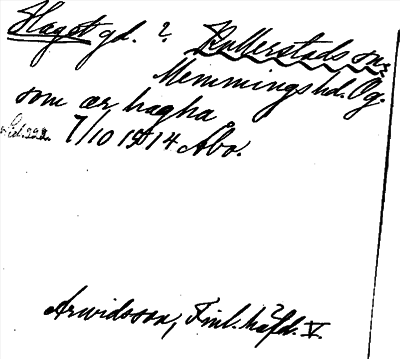 Haget gd. ? Kullerstads sn.
Memmings hd. Ög.
som ær hagha
7/10 1514 Åbo.
Arwidsson, Finl. häfd. V.